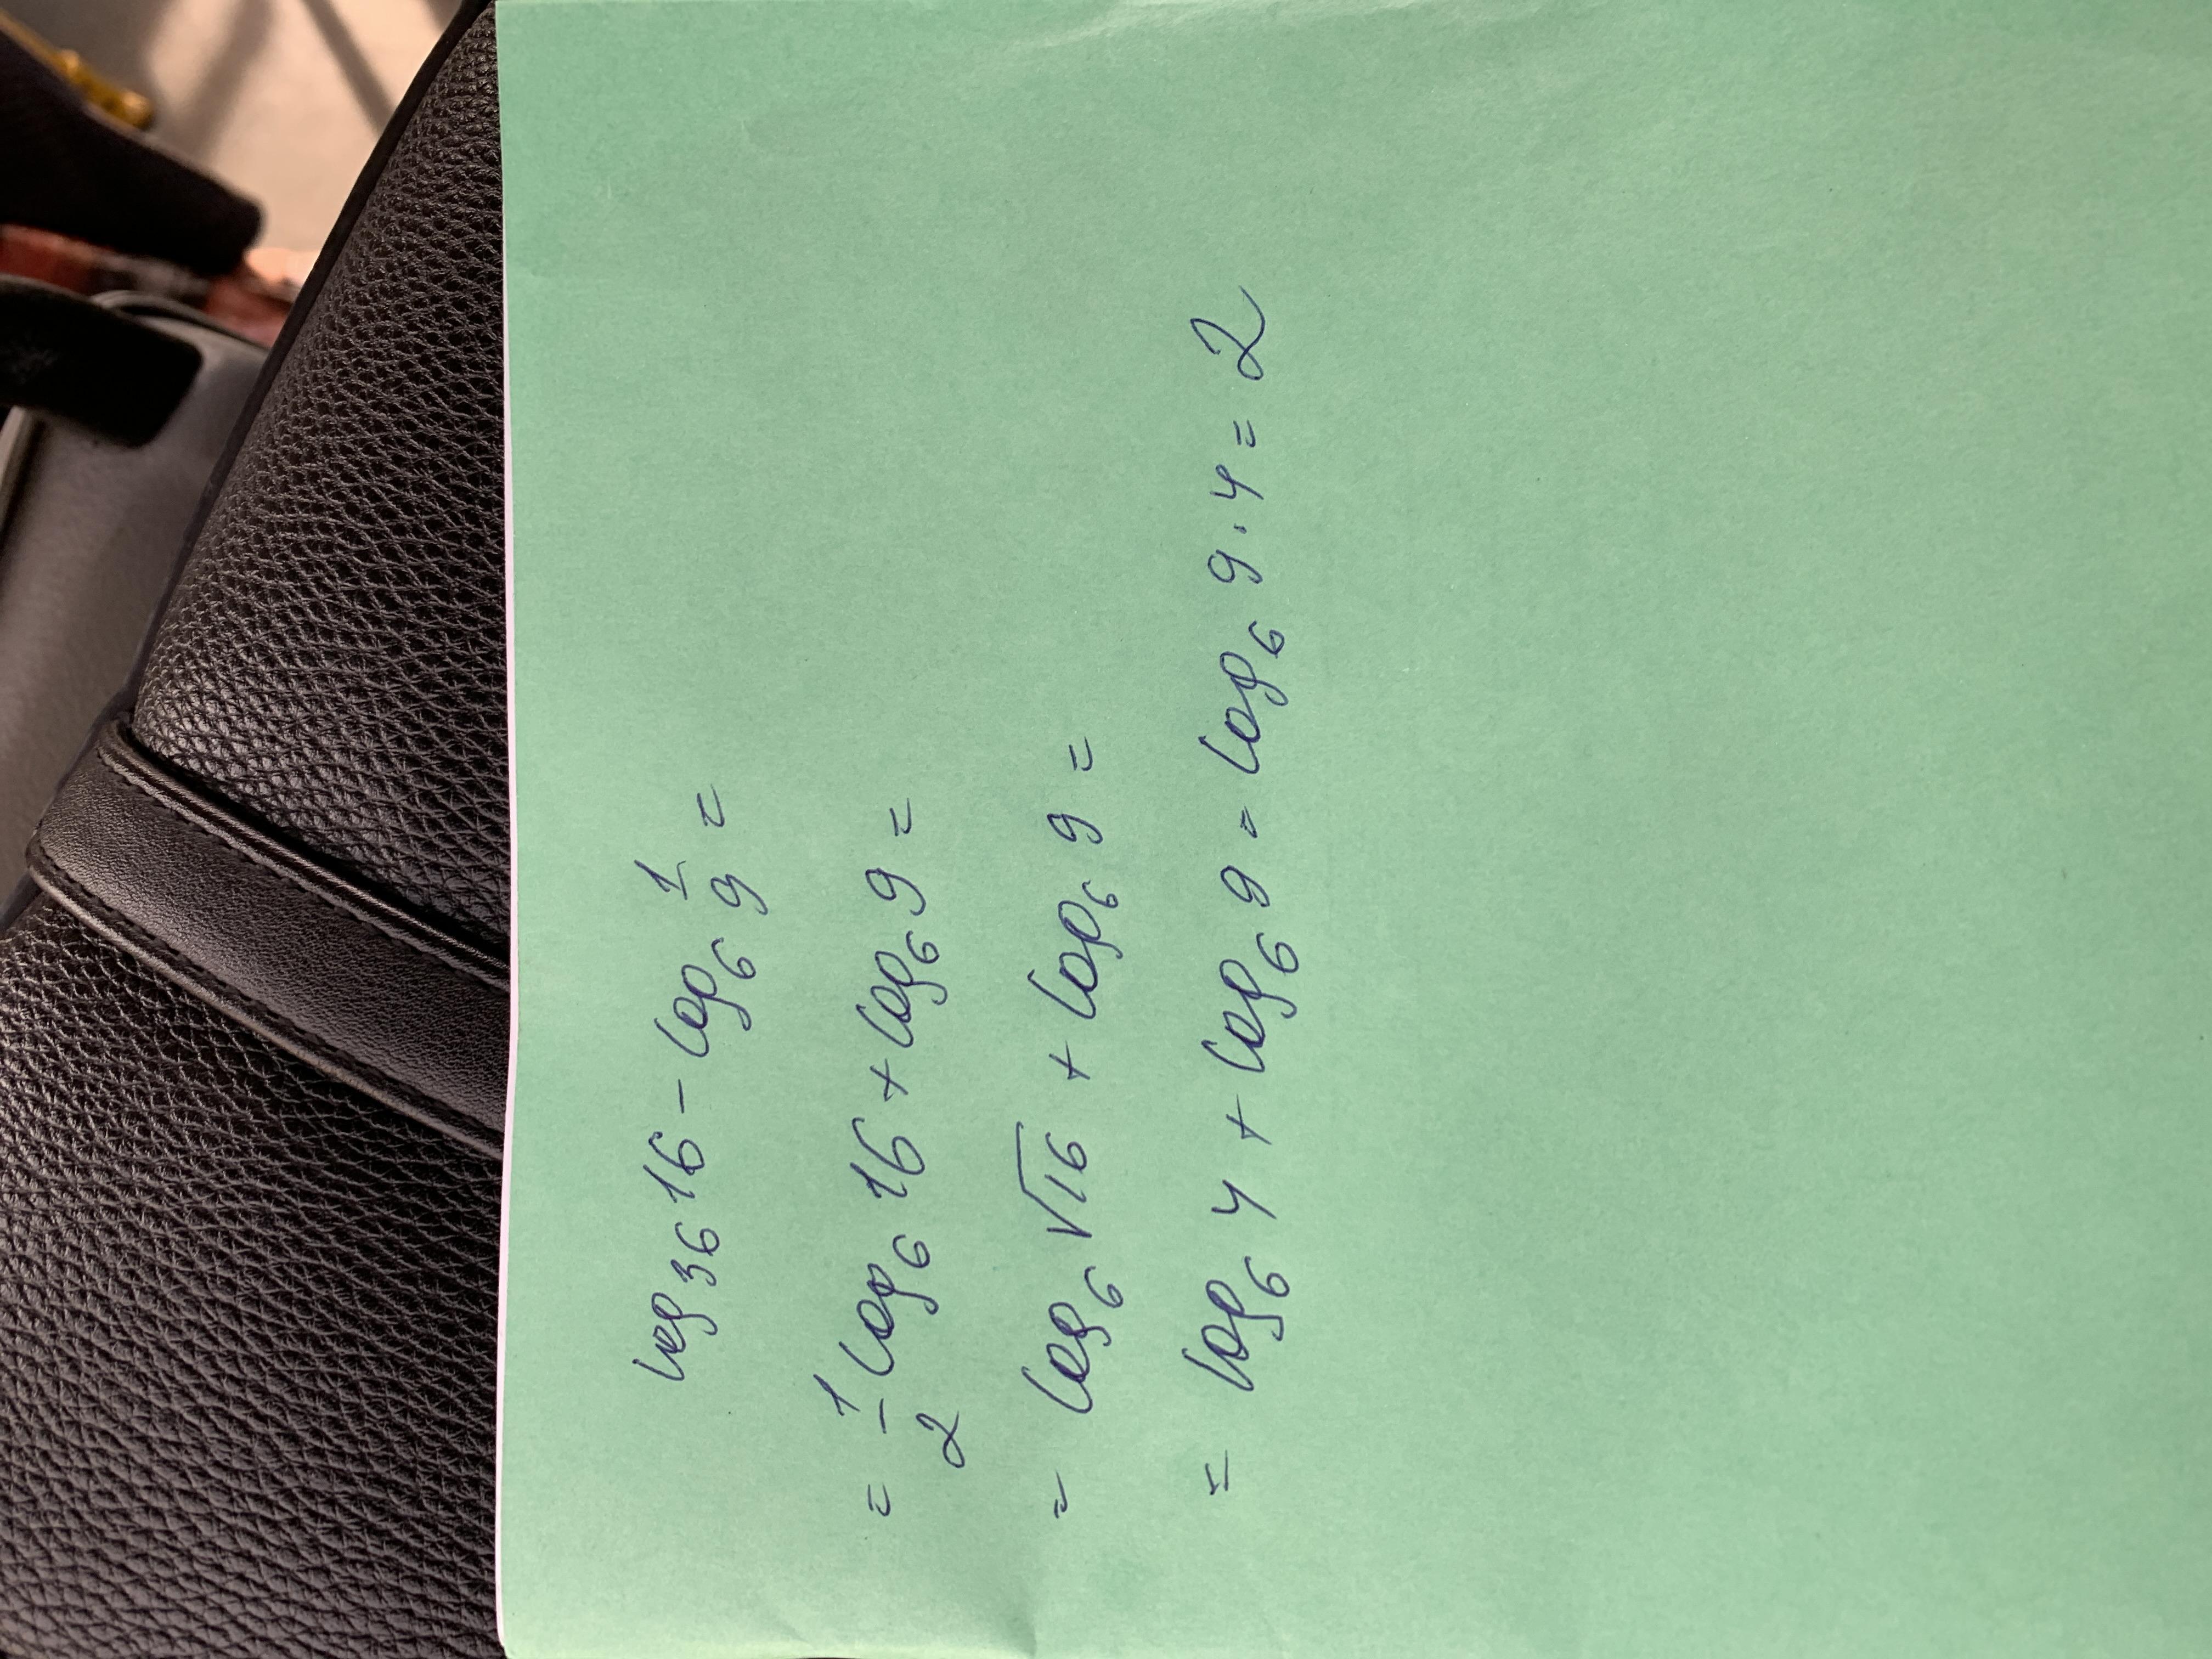 log₃₆ 16 - log₆ 1/9 =
= 1/2 log₆ 16 + log₆ 9 =
= log₆ √16 + log₆ 9 =
= log₆ 4 + log₆ 9 = log₆ 9 · 4 = 2